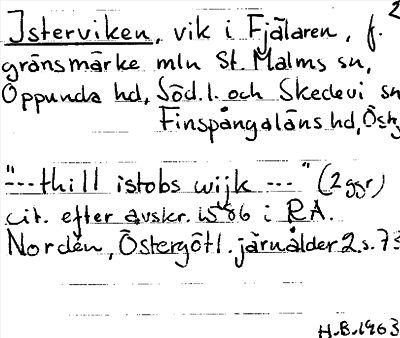 2
Isterviken, vik i Fjälaren, f.
gränsmärke mln St. Malms sn,
Oppunda hd, Söd.l. och Skedevi sn
Finspångaläns hd, Östg
"---thill istobs wijk ---" (2 ggr)
cit. efter avskr. 1586 i RA.
Nordén, Östergötl. järnålder 2 s. 73
H.B. 1963